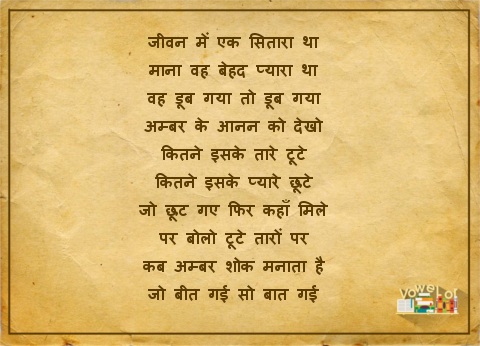 जीवन में एक सितारा था
माना वह बेहद प्यारा था
वह डूब गया तो डूब गया
अम्बर के आनन को देखो
कितने इसके तारे टूटे
कितने इसके प्यारे छूटे
जो छूट गए फिर कहाँ मिले
पर बोलो टूटे तारों पर
कब अम्बर शोक मनाता है
जो बीत गई सो बात गई